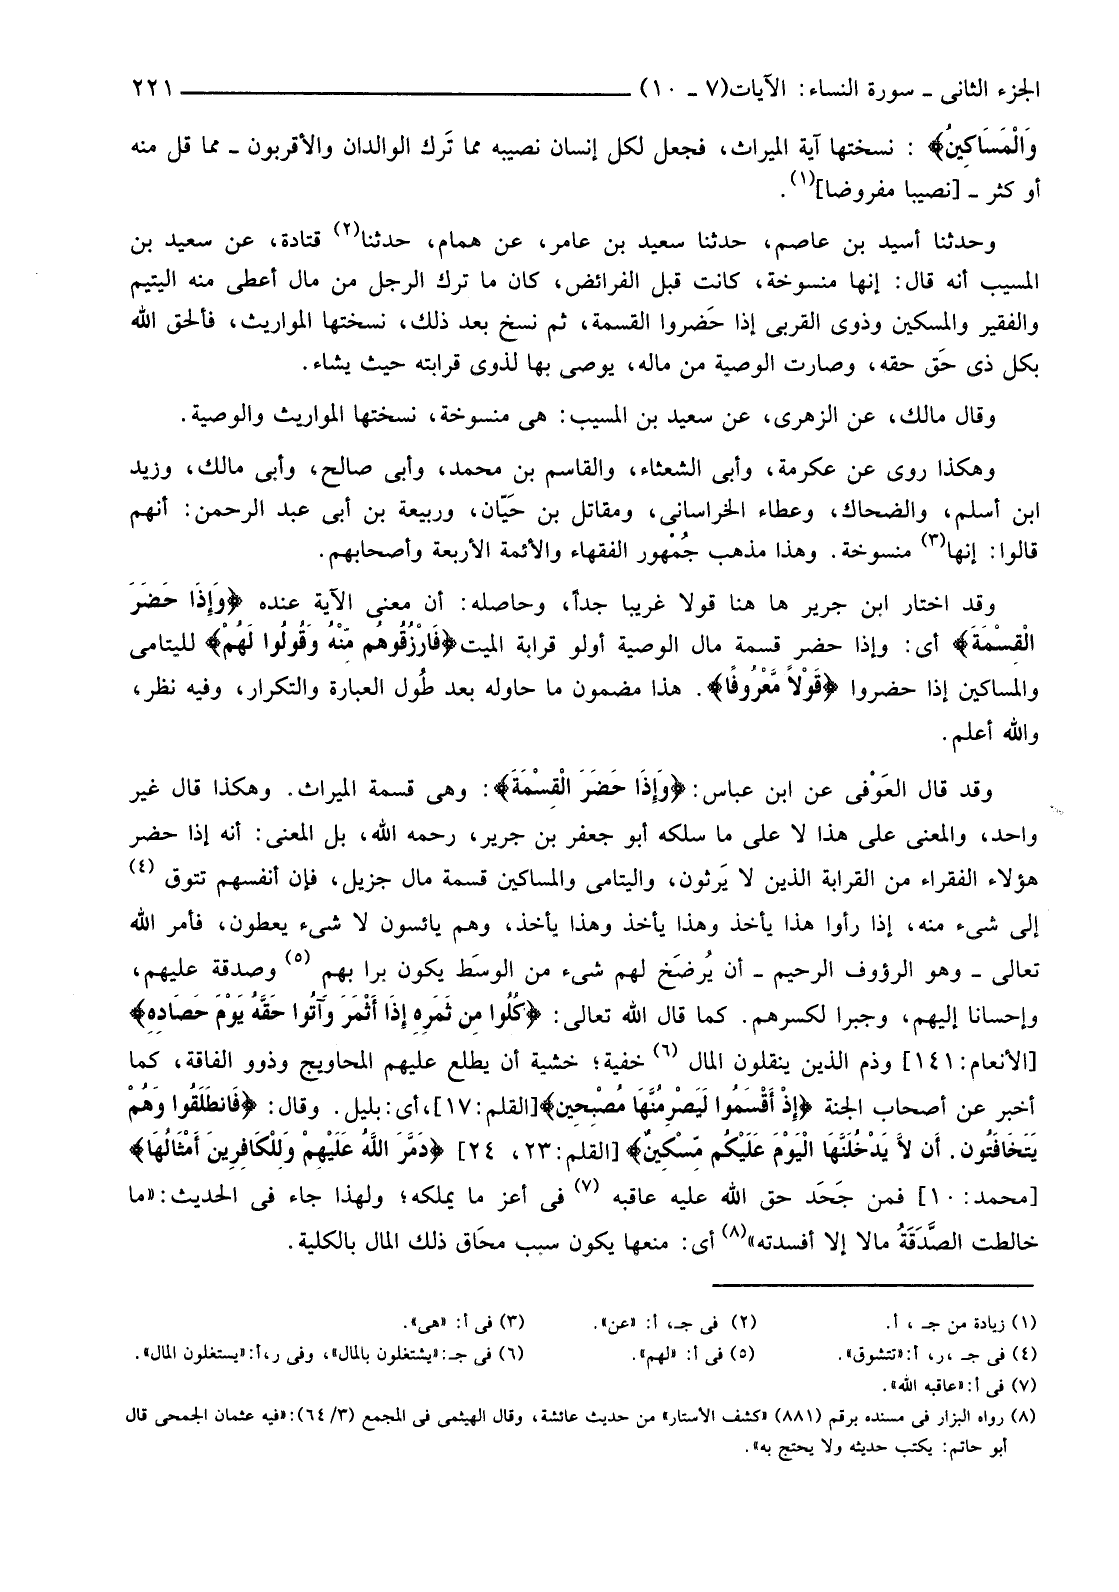 الجزء الثانى ـ سورة النساء: الآيات(٧ ـ ١٠) ٢٢١
وَالْمَسَاكِينُ﴾ : نسختها آية الميراث، فجعل لكل إنسان نصيبه مما تَرك الوالدان والأقربون ـ مما قل منه
أو كثر ـ [نصيبا مفروضا](١).
وحدثنا أسيد بن عاصم، حدثنا سعيد بن عامر، عن همام، حدثنا(٢) قتادة، عن سعيد بن
المسيب أنه قال: إنها منسوخة، كانت قبل الفرائض، كان ما ترك الرجل من مال أعطى منه اليتيم
والفقير والمسكين وذوى القربى إذا حَضروا القسمة، ثم نسخ بعد ذلك، نسختها المواريث، فألحق الله
بكل ذى حَق حقه، وصارت الوصية من ماله، يوصى بها لذوى قرابته حيث يشاء.
وقال مالك، عن الزهرى، عن سعيد بن المسيب: هى منسوخة، نسختها المواريث والوصية.
وهكذا روى عن عكرمة، وأبى الشعثاء، والقاسم بن محمد، وأبى صالح، وأبى مالك، وزيد
ابن أسلم، والضحاك، وعطاء الخراسانى، ومقاتل بن حَيّان، وربيعة بن أبى عبد الرحمن: أنهم
قالوا: إنها(٣) منسوخة. وهذا مذهب جُمْهور الفقهاء والأئمة الأربعة وأصحابهم.
وقد اختار ابن جرير ها هنا قولا غريبا جداً، وحاصله: أن معنى الآية عنده ﴿وَإِذَا حَضَرَ
الْقِسْمَةَ﴾ أى: وإذا حضر قسمة مال الوصية أولو قرابة الميت﴿فَارْزُقُوهُم مِّنْهُ وَقُولُوا لَهُمْ﴾ لليتامى
والمساكين إذا حضروا ﴿قَوْلاً مَّعْرُوفًا﴾. هذا مضمون ما حاوله بعد طُول العبارة والتكرار، وفيه نظر،
والله أعلم.
وقد قال العَوْفى عن ابن عباس: ﴿وَإِذَا حَضَرَ الْقِسْمَةَ﴾: وهى قسمة الميراث. وهكذا قال غير
واحد، والمعنى على هذا لا على ما سلكه أبو جعفر بن جرير، رحمه الله، بل المعنى: أنه إذا حضر
هؤلاء الفقراء من القرابة الذين لا يَرثون، واليتامى والمساكين قسمة مال جزيل، فإن أنفسهم تتوق (٤)
إلى شىء منه، إذا رأوا هذا يأخذ وهذا يأخذ وهذا يأخذ، وهم يائسون لا شىء يعطون، فأمر الله
تعالى ـ وهو الرؤوف الرحيم ـ أن يُرضَخ لهم شىء من الوسَط يكون برا بهم (٥) وصدقة عليهم،
وإحسانا إليهم، وجبرا لكسرهم. كما قال الله تعالى: ﴿كُلُوا مِن ثَمَرِهِ إِذَا أَثْمَرَ وَآتُوا حَقَّهُ يَوْمَ حَصَادِهِ﴾
[الأنعام:١٤١] وذم الذين ينقلون المال (٦) خفية؛ خشية أن يطلع عليهم المحاويج وذوو الفاقة، كما
أخبر عن أصحاب الجنة ﴿إِذْ أَقْسَمُوا لَيَصْرِمُنَّهَا مُصْبِحِين﴾[القلم:١٧]،أى:بليل. وقال: ﴿فَانطَلَقُوا وَهُمْ
يَتَخَافَتُون. أَن لاَّ يَدْخُلَنَّهَا الْيَوْمَ عَلَيْكُم مِّسْكِينٌ﴾ [القلم:٢٣، ٢٤] ﴿دَمَّرَ اللَّهُ عَلَيْهِمْ وَلِلْكَافِرِينَ أَمْثَالُهَا﴾
[محمد:١٠] فمن جَحَد حق الله عليه عاقبه (٧) فى أعز ما يملكه؛ ولهذا جاء فى الحديث:«ما
خالطت الصَّدَقَةُ مالا إلا أفسدته»(٨) أى: منعها يكون سبب محَاق ذلك المال بالكلية.
(١) زيادة من جـ ، أ. (٢) فى جـ، أ: «عن». (٣) فى أ: «هى».
(٤) فى جـ ،ر، أ:«تتشوق». (٥) فى أ: «لهم». (٦) فى جـ:«يشتغلون بالمال»، وفى ر،أ:«يستغلون المال».
(٧) فى أ:«عاقبه الله».
(٨) رواه البزار فى مسنده برقم (٨٨١) «كشف الأستار» من حديث عائشة، وقال الهيثمى فى المجمع (٣/ ٦٤):«فيه عثمان الجمحى قال
أبو حاتم: يكتب حديثه ولا يحتج به».